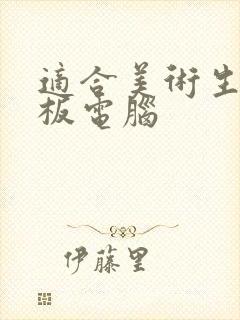 適合美術生
板電腦
伊藤里